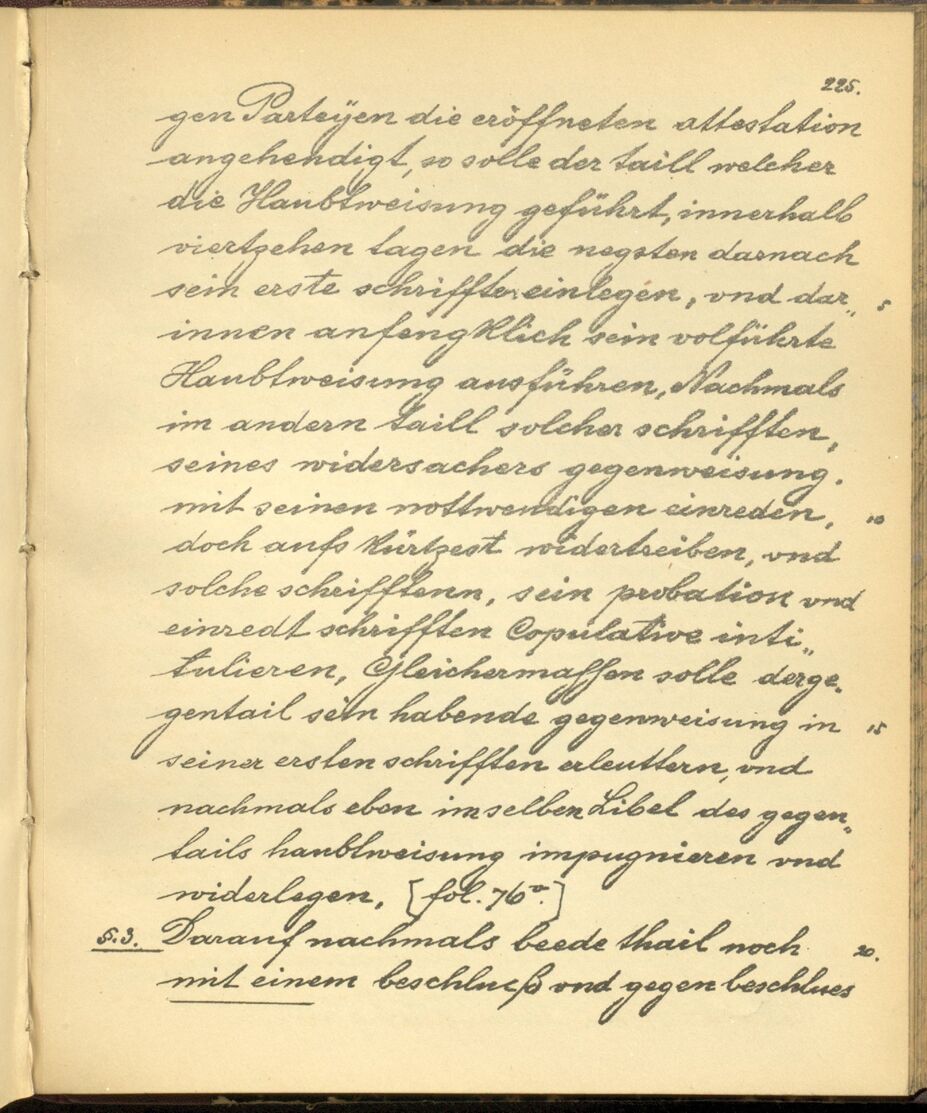 225.
gen Parteÿen die eröffneten attestation
angehendigt, so solle der taill welcher
die Haubtweisung geführt, innerhalb
viertzehen tagen die negsten darnach
sein erste schriffte einlegen, vnd dar„ 5
innen anfengklich sein volführte
Haubtweisung ausführen, Nachmals
im andern taill solcher schrifften,
seines widersachers gegenweisung.
mit seinen nottwendigen einreden, 10
doch aufs kürtzest widertreiben, vnd
solche schrifftenn, sein probation vnd
einredt schrifften Copulative inti„
tulieren, Gleichermassen solle derge„
gentail sein habende gegenweisung in 15
seiner ersten schrifften erleuttern, vnd
nachmals eben im selben Libel des gegen„
tails haubtweisung impugnieren vnd
widerlegen, [fol. 76v.]
§.3. Darauf nachmals beede thail noch 20.
mit einem beschluß vnd gegen beschlues